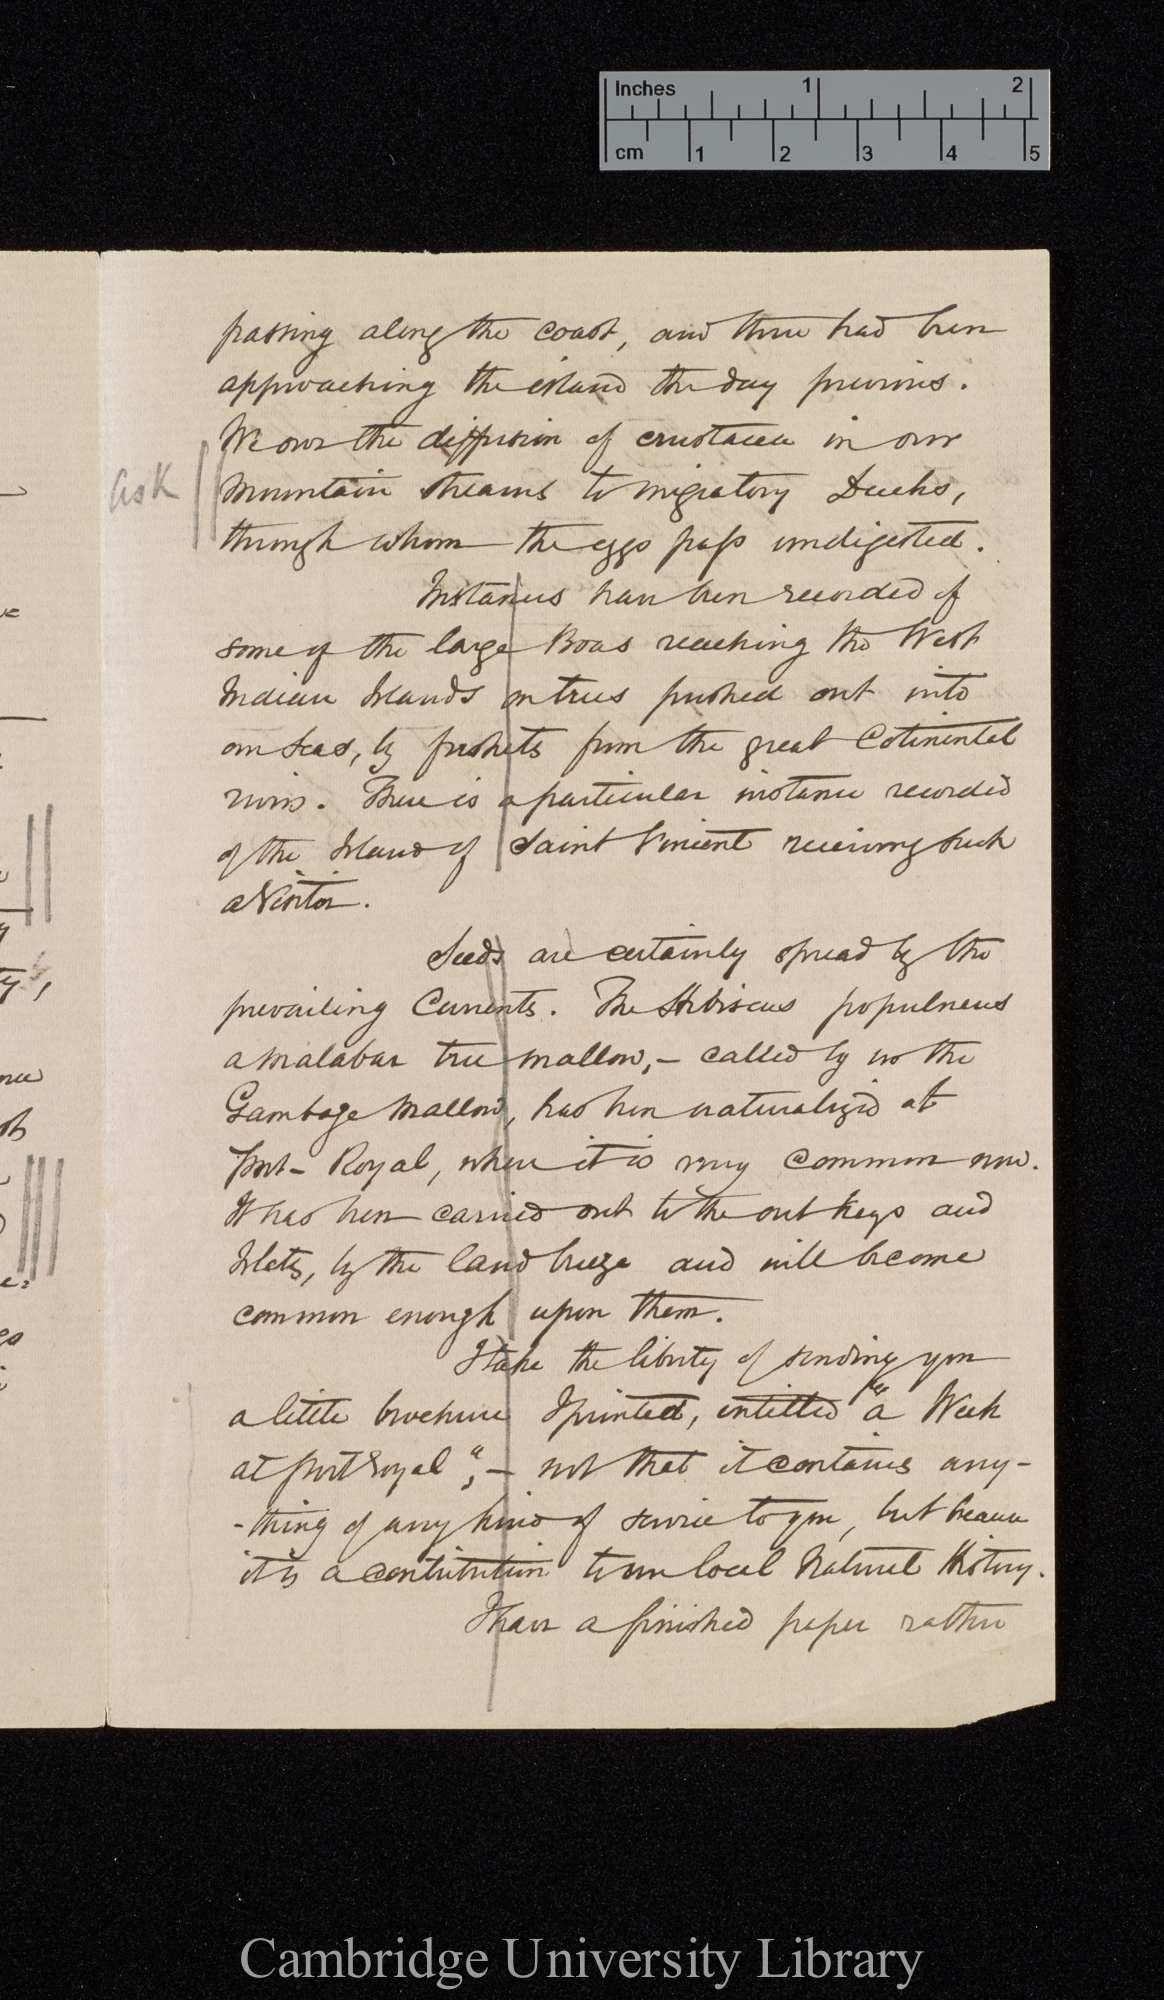 Inches 1 2
cm 1 2 3 4 5
passing along the coast, and these had been
approaching the island the day previous.
We owe the diffusion of crustacea in our
ask
Mountain streams to migratory Ducks,
through whom the eggs pass undigested.
Instances have been recorded of
some of the large Boas reaching the West
Indian Islands on trees pushed out into
our seas, by freshets from the great Cotinental
rivers. There is a particular instance recorded
of the Island of Saint Vincent receiving such
a Visitor.
Seeds are certainly spread by the
prevailing Currents. The Hibiscus populneus
a Malabar tree mallow,— called by us the
Gamboge Mallow, has been naturalized at
Port-Royal, where it is very common now.
It has been carried out to the out Keys and
Islets, by the land breeze and will become
common enough upon them.
I take the liberty of sending you
a little brochure I printed, entitled "a Week
at port Royal",— not that it contains any-
-thing of any kind of service to you, but because
it is a contribution to our local Natural History.
I have a finished paper rather
Cambridge University Library